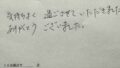 気持ちよく 過ごさせていただきました
ありがとう ございました。